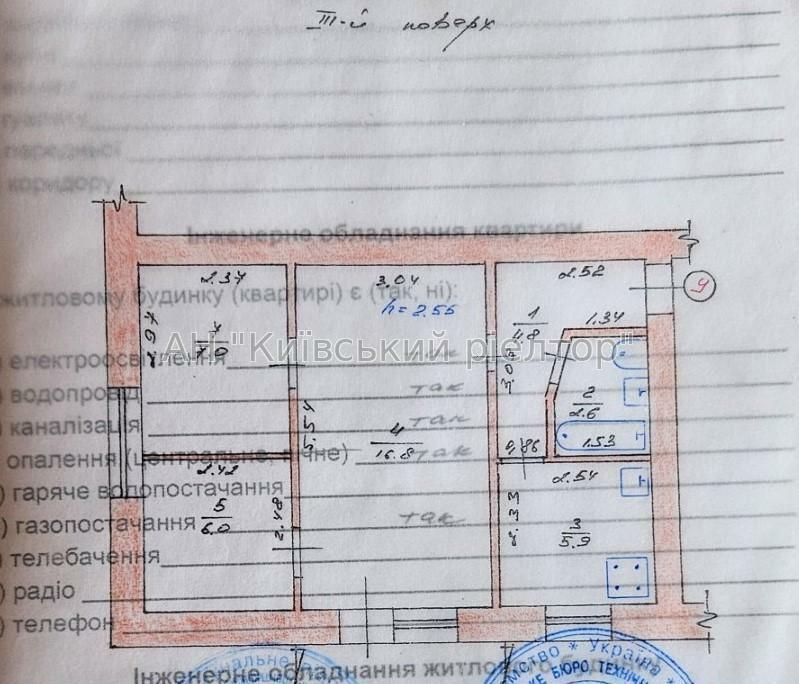 III-й поверх
передньої
коридору
Інженерне обладнання квартири
житловому будинку (квартирі) є (так, ні):
АН "Київський ріелтор"
електроосвітлення
водопровід так
каналізація так
опалення (центральне, пічне) так
гаряче водопостачання
газопостачання так
телебачення
радіо
телефон
Інженерне обладнання житлового будинку
2.37
3.04
2.52
9
h=2.55
2.97
1
4.8
1.34
7.0
3.07
2
2.6
5.54
4
16.8
0.86
1.53
2.42
2.54
5
6.0
2.48
2.33
3
5.9
Україна
БЮРО ТЕХНІЧ